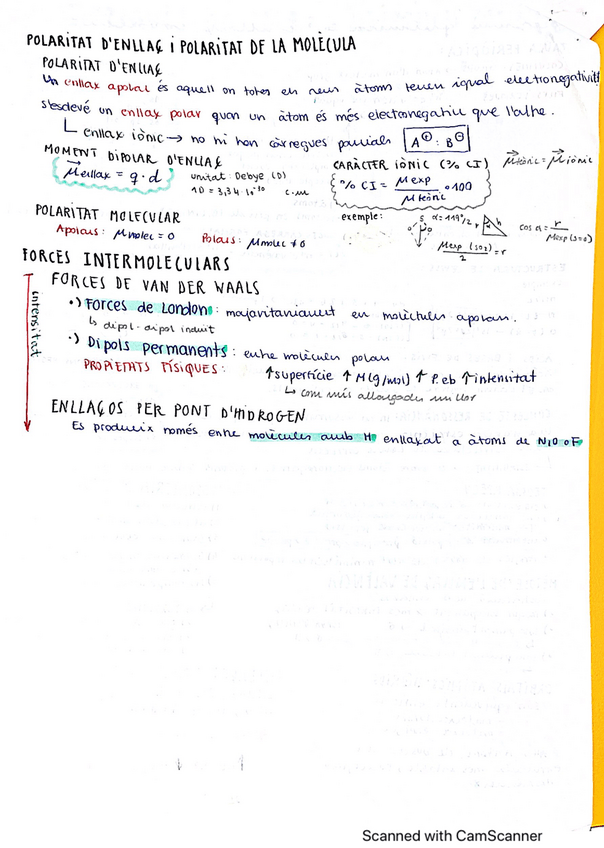 POLARITAT D'ENLLAÇ i POLARITAT DE LA MOLÈCULA
POLARITAT D'ENLLAÇ
Un enllaç apolar és aquell on totes en seus àtoms tenen igual electronegativit
s'esdevé un enllaç polar quan un àtom és més electronegatiu que l'altre.
enllaç iònic → no hi han càrregues parcials A⊕ : B⊖
MOMENT DIPOLAR D'ENLLAÇ
μenllaç = q · d
unitat: Debye (D)
1D = 3,34·10⁻³⁰ C.m
CARÀCTER IÒNIC (% CI)
% CI = μexp / μteòric · 100
μteòric = μiònic
POLARITAT MOLECULAR
Apolars: μmolec = 0 Polars: μmolec ≠ 0
exemple: S O O α=119º/2 r h
μexp (SO2) / 2 = r
cos α = r / μexp (S=O)
FORCES INTERMOLECULARS
intensitat
FORCES DE VAN DER WAALS
•) Forces de London: majoritàriament en molècules apolars.
↳ dipol-dipol induit
•) Dipols permanents: entre molècules polars
PROPIETATS FÍSIQUES: ↑superfície ↑M(g/mol) ↑P.eb ↑intensitat
↳ com més allargades millor
ENLLAÇOS PER PONT D'HIDROGEN
Es produeix només entre molècules amb H enllaçat a àtoms de N,O o F
Scanned with CamScanner